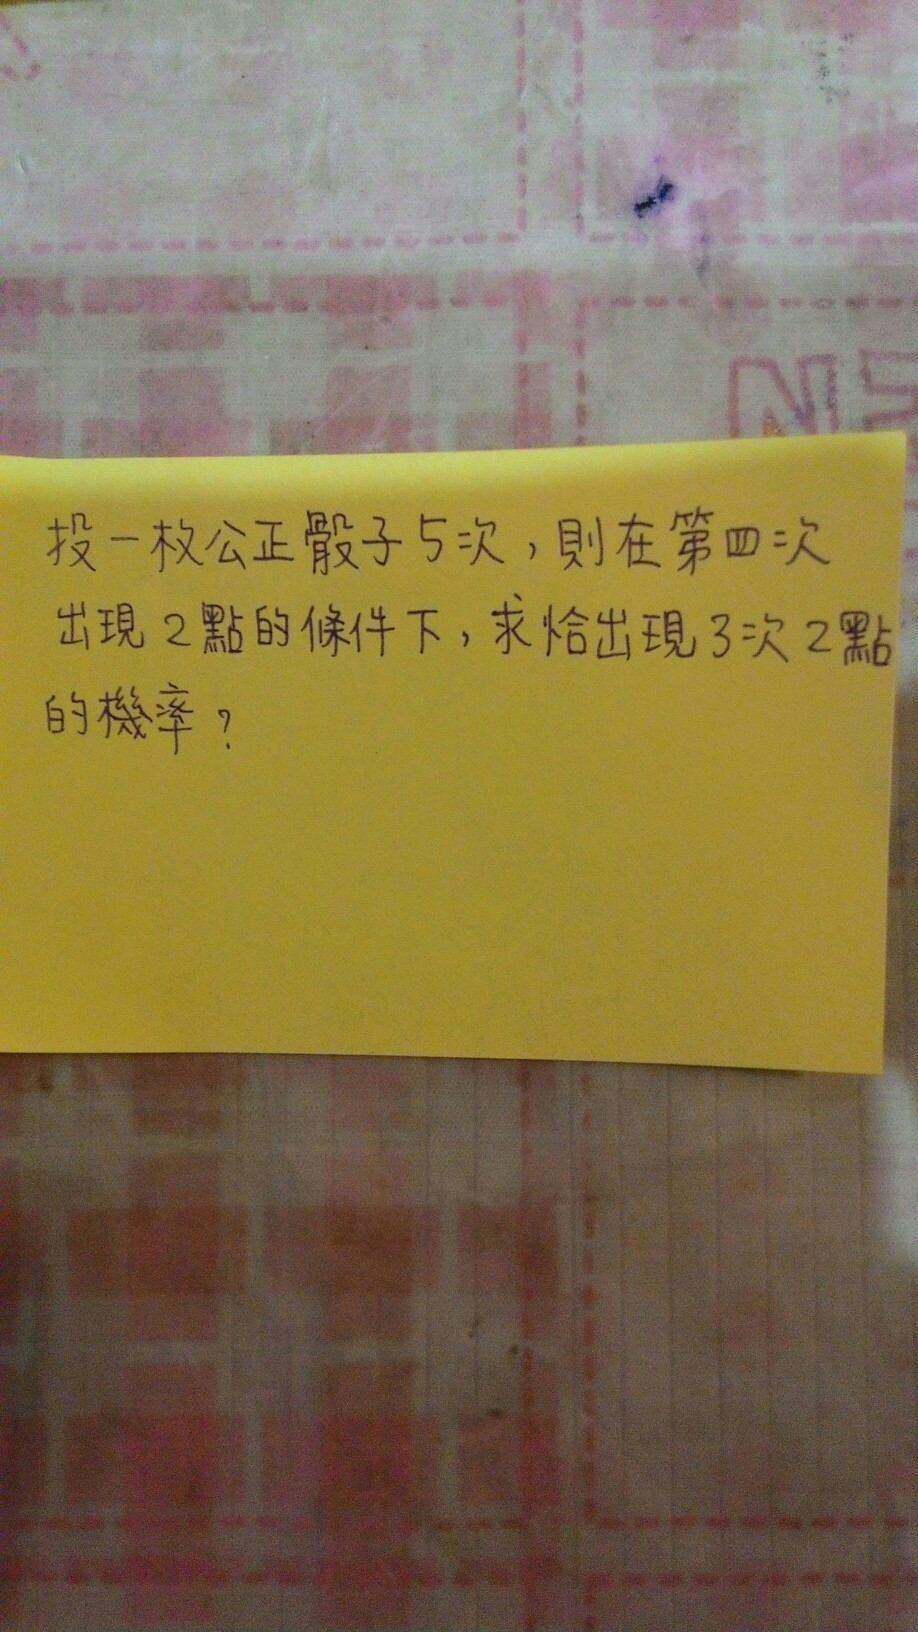 NE
投一枚公正骰子5次，則在第四次
出現2點的條件下，求恰出現3次2點
的機率？